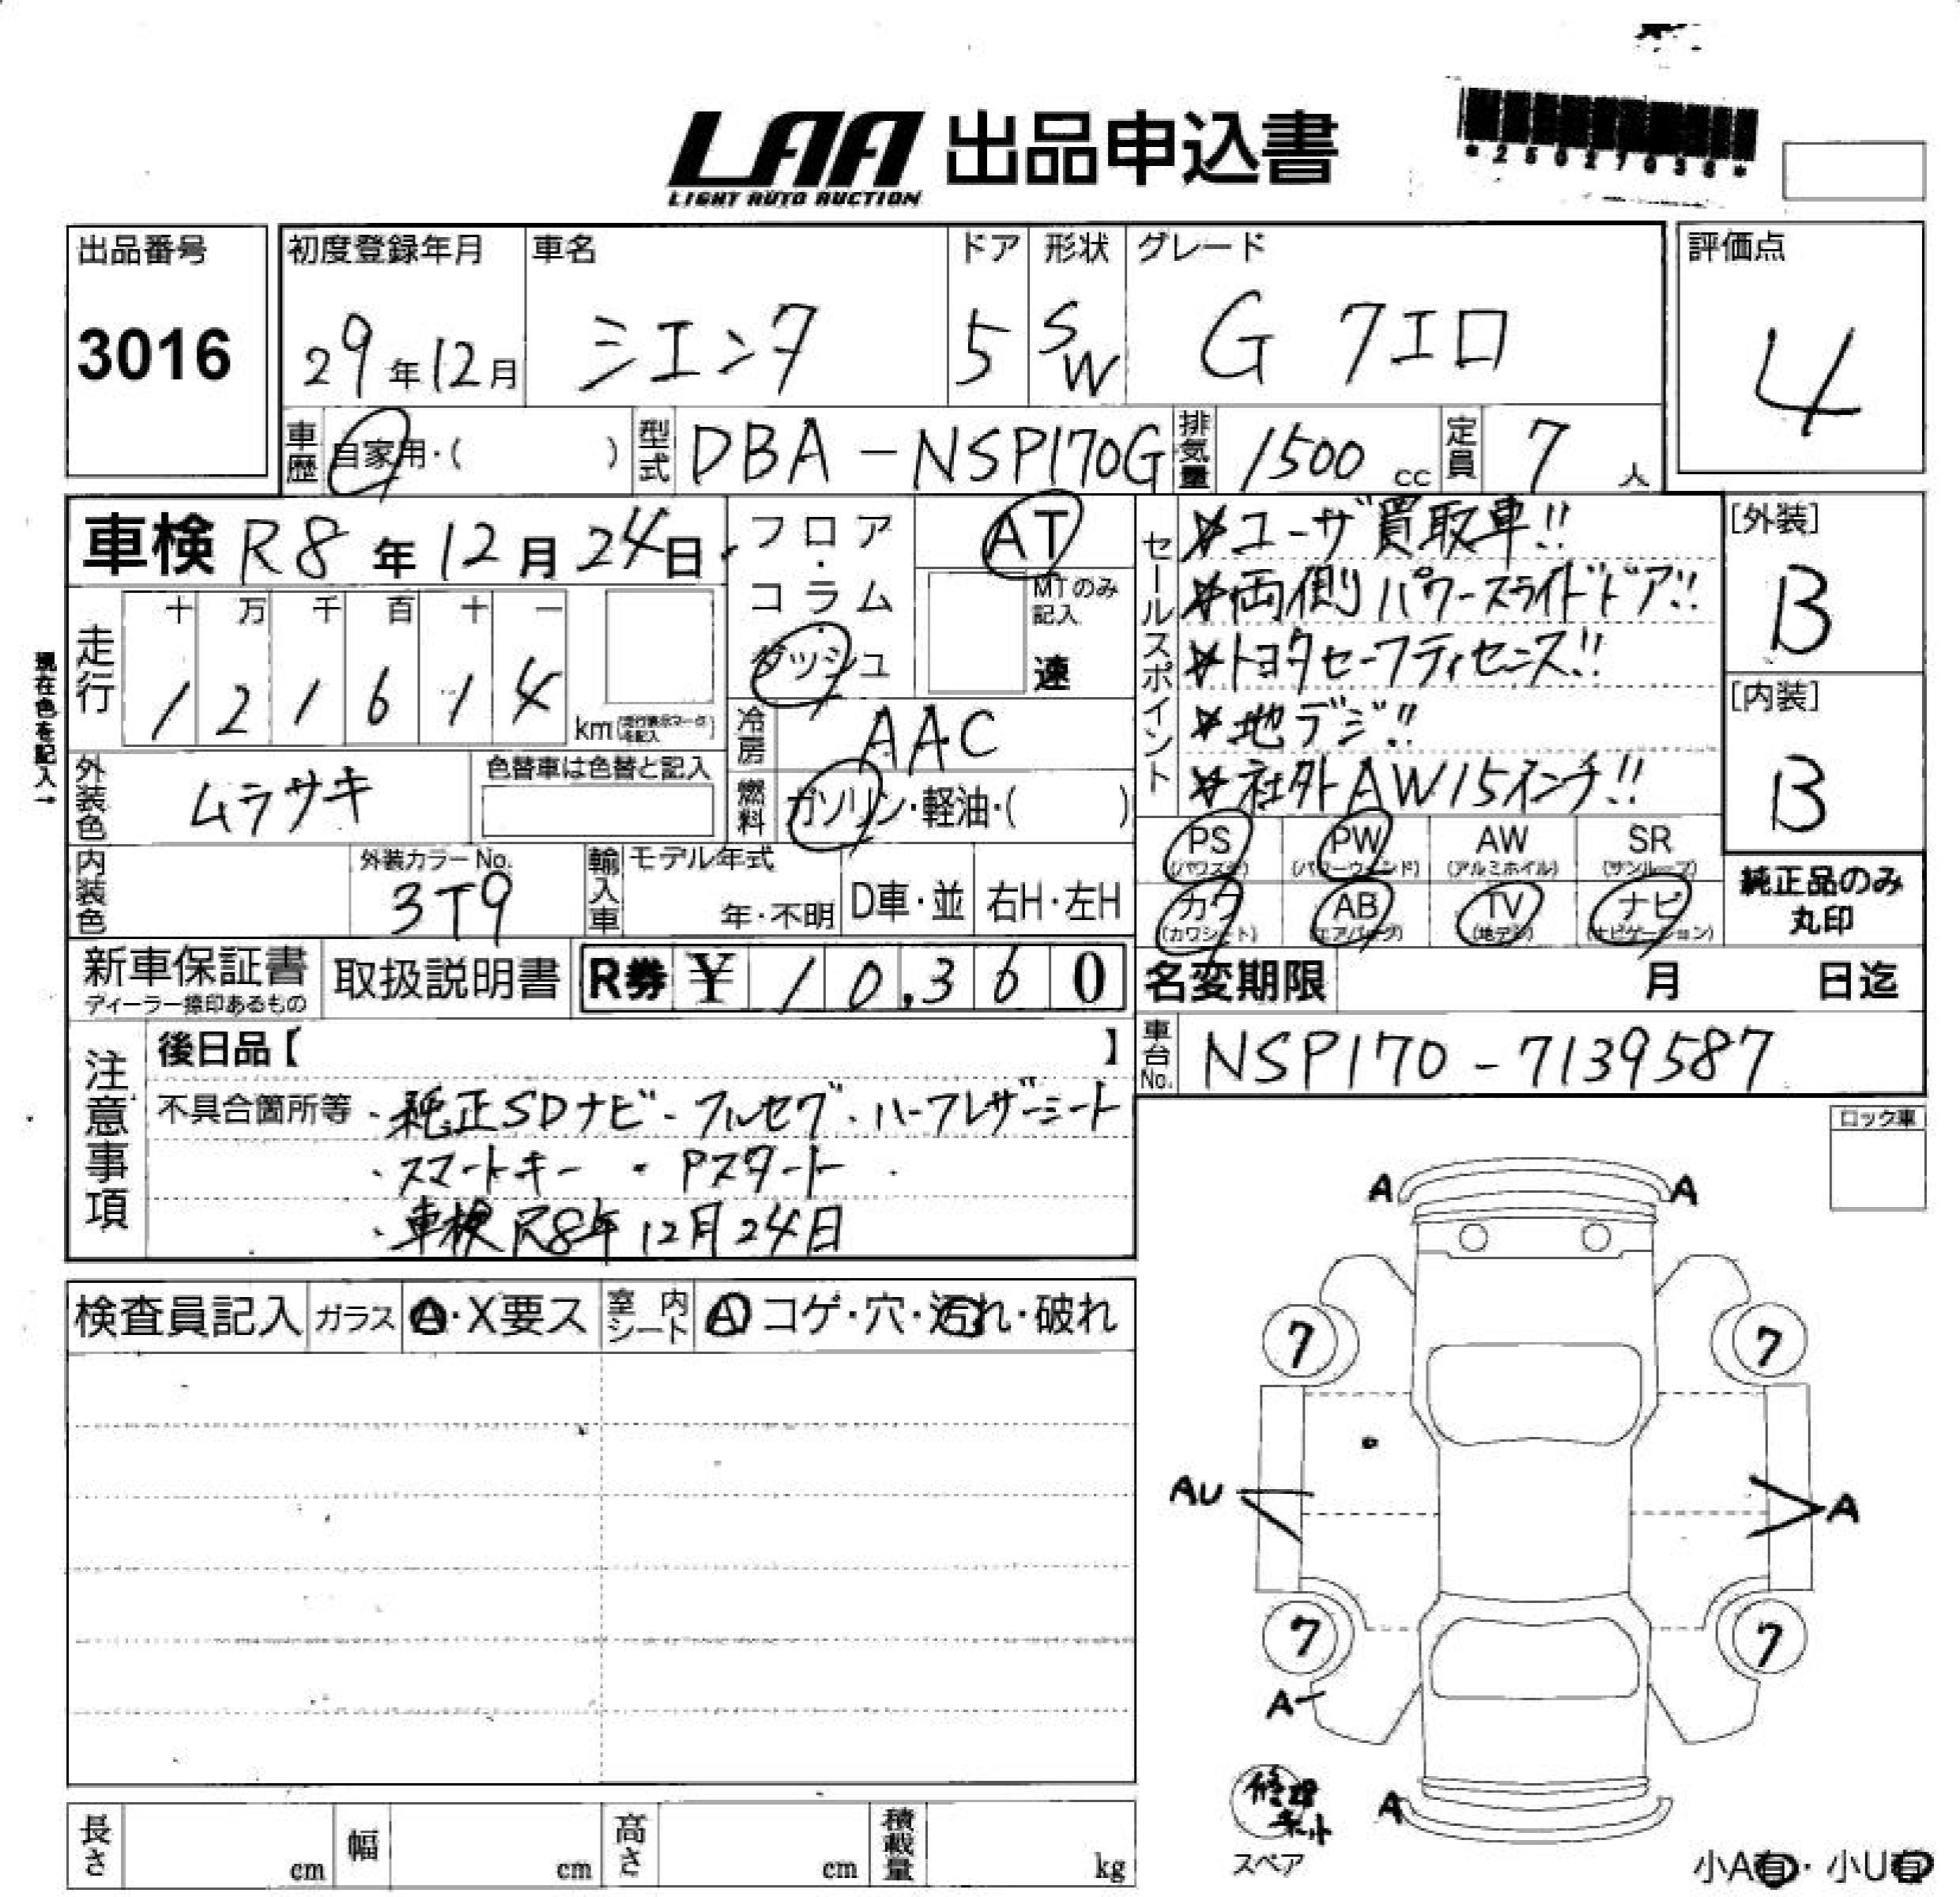 LAA 出品申込書
LIGHT AUTO AUCTION
出品番号
3016
初度登録年月
29年12月
車名
シエンタ
ドア
5
形状
SW
グレード
G 7エロ
評価点
4
車歴
自家用・( )
型式
DBA-NSP170G
排気量
1500 cc
定員
7 人
車検 R8年12月24日
走行
十 万 千 百 十 一
1 2 1 6 1 4 km
現在色を記入→
外装色
ムラサキ
色替車は色替と記入
内装色
外装カラーNo.
3T9
輸入車
モデル年式
年・不明
D車・並
右H・左H
フロア・コラム・ダッシュ
AT
MTのみ記入
速
冷房
AAC
燃料
ガソリン・軽油・( )
セールスポイント
※ユーザ買取車!!
※両側パワースライドドア!!
※トヨタセーフティセンス!!
※地デジ!!
※社外AW15インチ!!
[外装]
B
[内装]
B
PS
PW
(パワーウィンド)
AW
(アルミホイル)
SR
(サンルーフ)
カワ
(カワシート)
AB
(エアバッグ)
TV
(地デジ)
ナビ
(ナビゲーション)
純正品のみ
丸印
新車保証書
ディーラー捺印あるもの
取扱説明書
R券 ¥ 10,360
名変期限 月 日迄
車台No.
NSP170-7139587
注意事項
後日品【 】
不具合箇所等 ・純正SDナビ・フルセグ・ハーフレザーシート
・スマートキー ・Pスタート
・車検R8年12月24日
ロック車
検査員記入
ガラス
A・X要ス
室内シート
A コゲ・穴・汚れ・破れ
A A
7 7
AU A
7 7
A
A
修理キット
スペア
小A有・小U有
長さ cm
幅 cm
高さ cm
積載量 kg